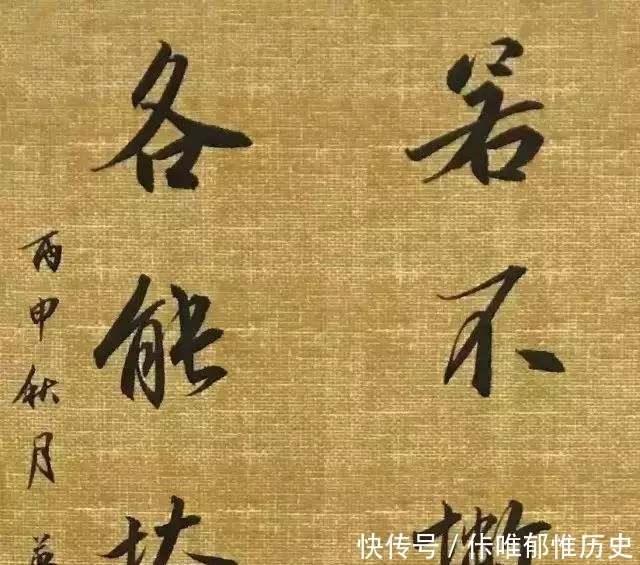 若不撇
各能捺
丙申秋月
快传号 / 佧唯郁惟历史